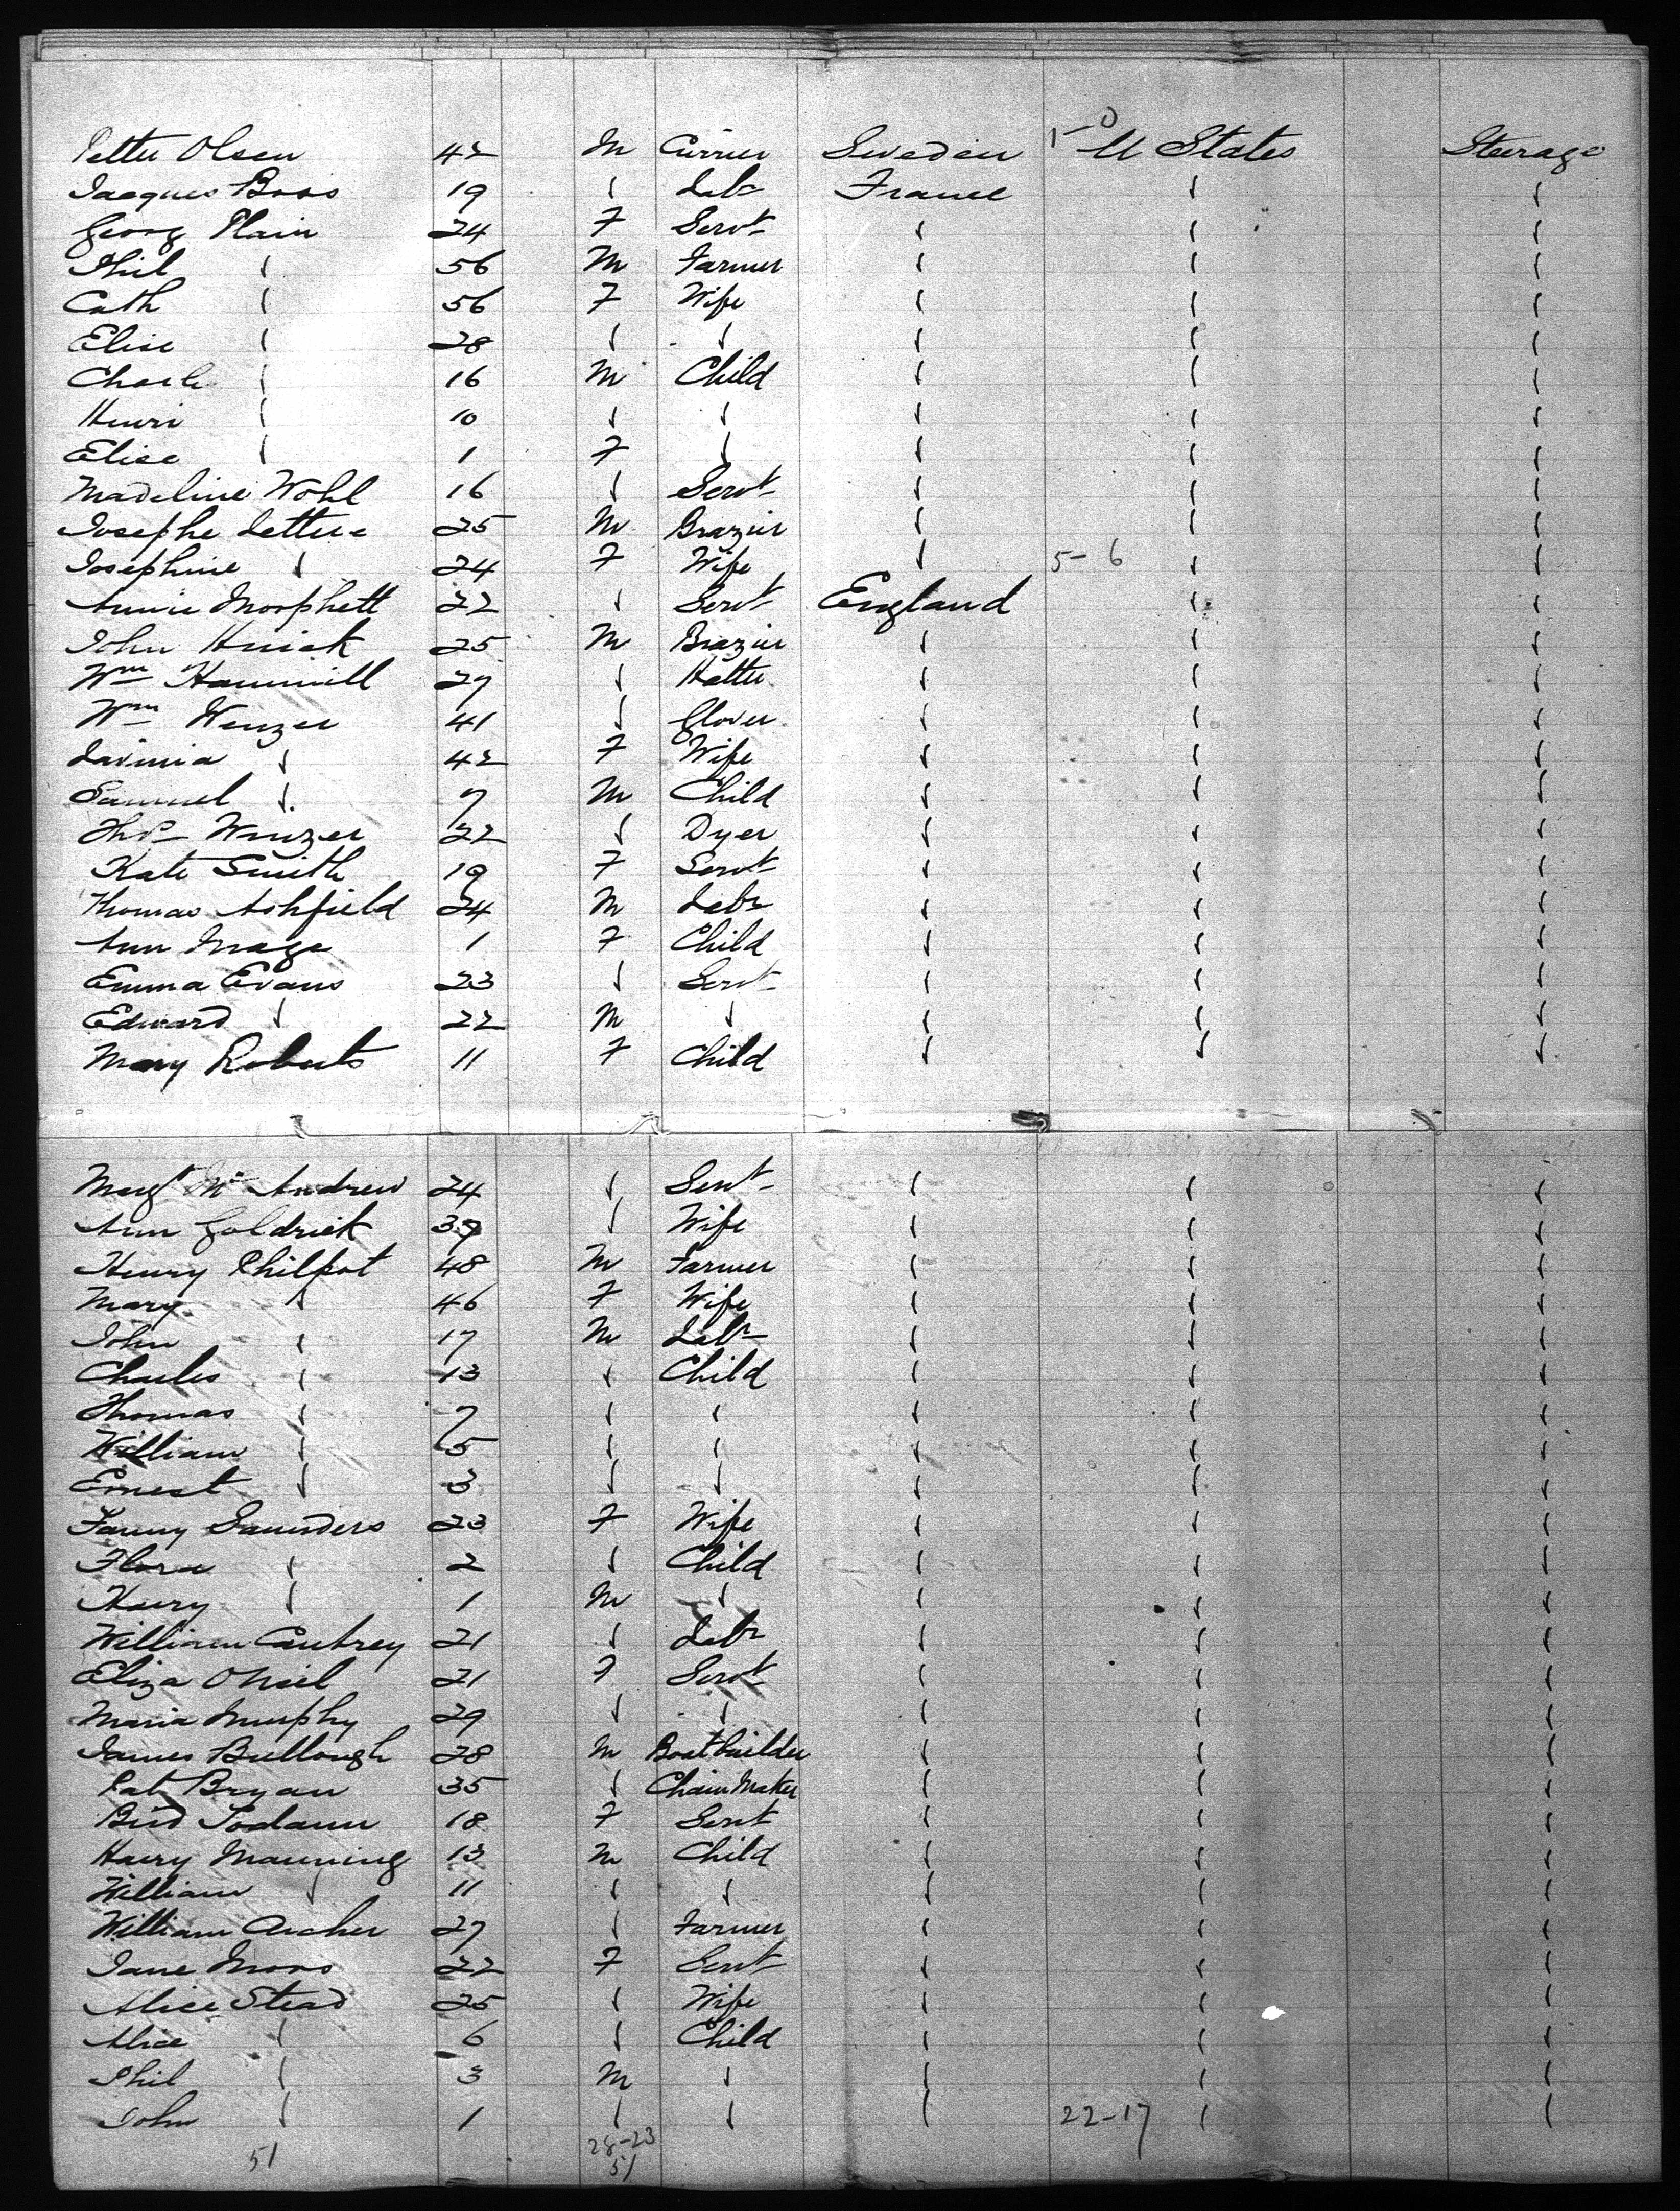 Petter Olsen 42 M Currier Sweden 1-0 U States Steerage
Jacques Boos 19 Labr France
Georg Plain 24 F Servt
Phil 56 M Farmer
Cath 56 F Wife
Elise 28
Charle 16 M Child
Henri 10
Elise 1 F
Madeline Wohl 16 Servt
Josephe 25 M Brazier
Josephine 24 F Wife 5-6
Annie Morphett 22 Servt England
John 25 M Brazier
Wm Hammill 29 Hatter
Wm Wenzer 41 Glover
Lavinia 42 F Wife
Samuel 7 M Child
Thos Winzer 22 Dyer
Kate Smith 19 F Servt
Thomas Ashfield 24 M Labr
Ann 1 F Child
Emma Evans 23 Servt
Edward 22 M
Mary Roberts 11 F Child
Margt Mc Andrew 24 Servt
Ann Goldrick 39 Wife
Henry Philpot 48 M Farmer
Mary 46 F Wife
John 17 M Labr
Charles 13 Child
Thomas 7
William 5
Ernest 3
Fanny Saunders 23 F Wife
Flora 2 Child
Harry 1 M
William 21 Labr
Eliza ONeil 21 F Servt
Maria Murphy 29
James Bullough 28 M Boatbuilder
Pat Bryan 35 Chain Maker
Brid 18 F Servt
Harry Manning 13 M Child
William 11
William Archer 27 Farmer
Jane Moos 22 F Servt
Alice Stead 25 Wife
Alice 6 Child
Phil 3 M
John 1 22-17
51 28-23
51